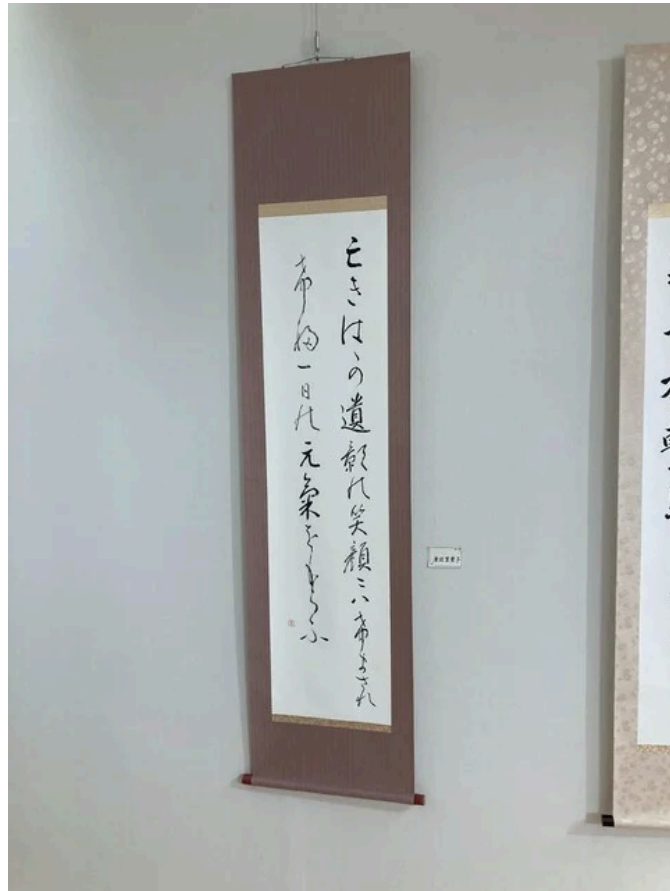 亡きはゝの遺影乃笑顔ニハ希まされ
希婦一日乃元氣をもらふ